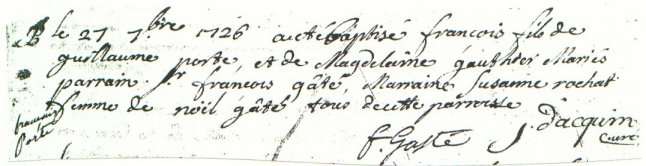 B le 27 7bre 1726 a eté baptisé francois fils de
guillaume porte, et de Magdelaine gauthier Mariés
parrain Sr francois gâté, Marraine Susanne rochat
femme de noël gâté tous de cette parroisse
francois
Porte
f Gaste J. dacquin
Curé